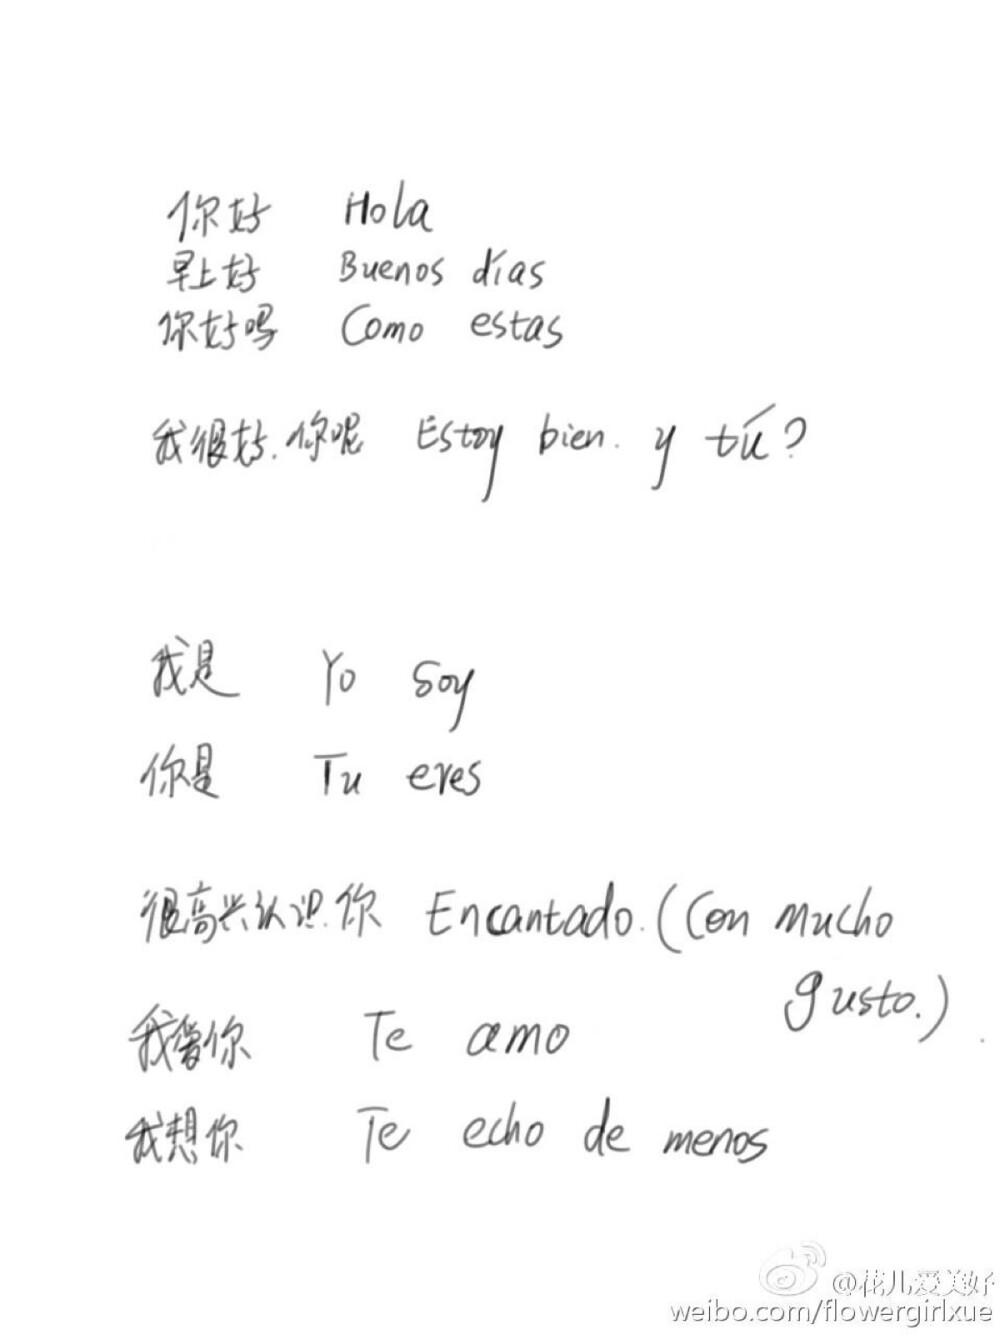 你好 Hola
早上好 Buenos días
你好吗 Como estas
我很好.你呢 Estoy bien. y tú?
我是 Yo soy
你是 Tu eres
很高兴认识你 Encantado. (Con mucho
gusto.)
我爱你 Te amo
我想你 Te echo de menos
@花儿爱美好
weibo.com/flowergirlxue